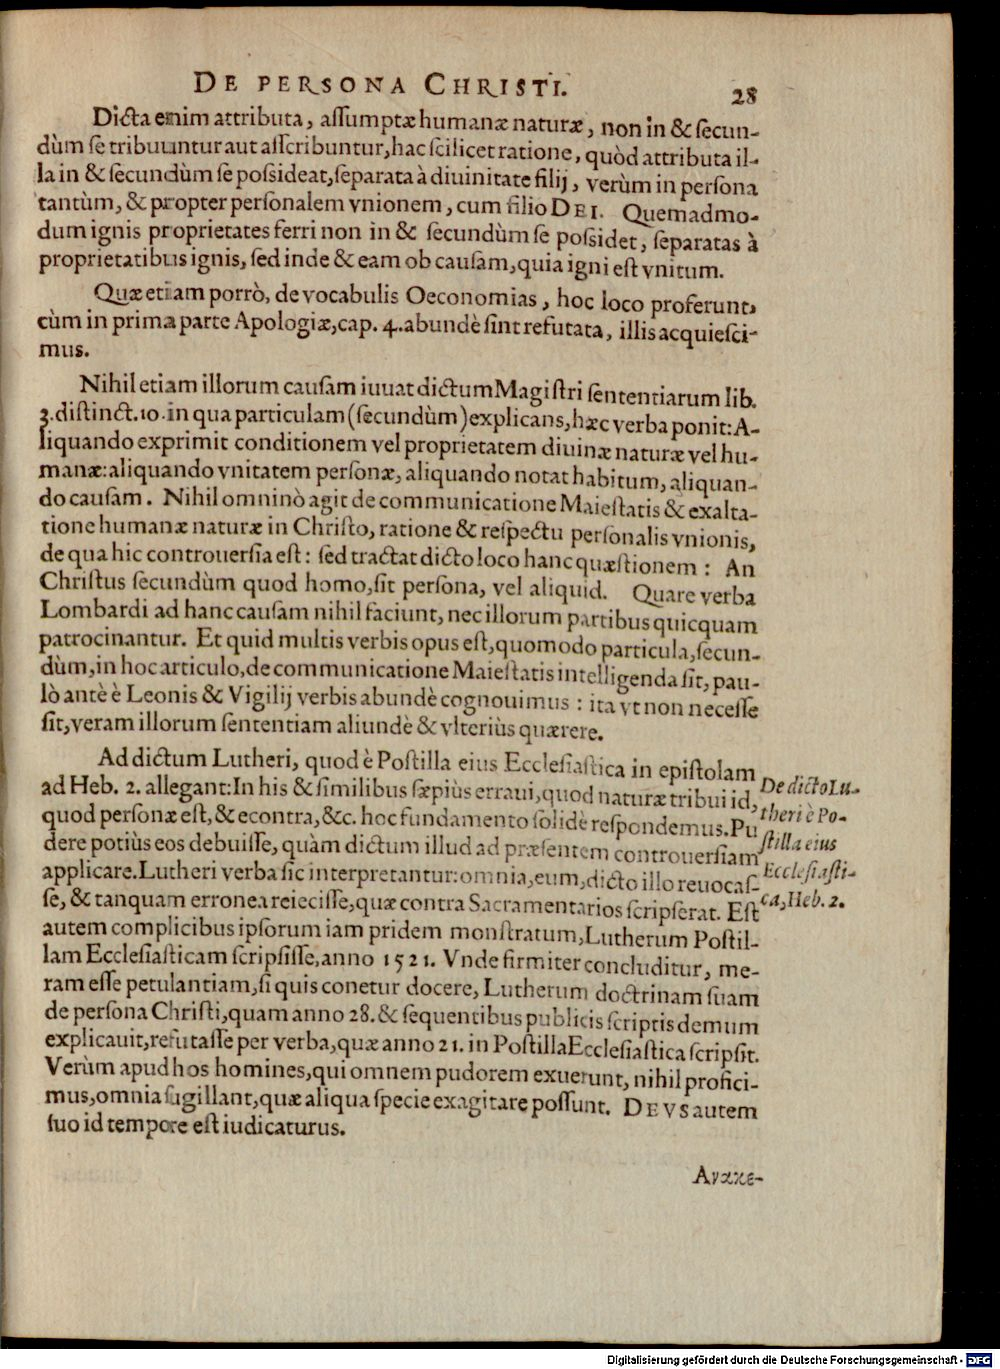 DE PERSONA CHRISTI.
28
Dicta enim attributa, aſſumptæ humanæ naturæ, non in & ſecun-
dùm ſe tribuuntur aut aſſcribuntur, hac ſcilicet ratione, quòd attributa il-
la in & ſecundùm ſe poſsideat, ſeparata à diuinitate filij, verùm in perſona
tantùm, & propter perſonalem vnionem, cum filio DEI. Quemadmo-
dum ignis proprietates ferri non in & ſecundùm ſe poſsidet, ſeparatas à
proprietatibus ignis, ſed inde & eam ob cauſam, quia igni eſt vnitum.
Quæ etiam porrò, de vocabulis Oeconomias, hoc loco proferunt,
cùm in prima parte Apologiæ, cap. 4. abundè ſint refutata, illis acquieſci-
mus.
Nihil etiam illorum cauſam iuuat dictum Magiſtri ſententiarum lib.
3. diſtinct. 10. in qua particulam (ſecundùm) explicans, hæc verba ponit: A-
liquando exprimit conditionem vel proprietatem diuinæ naturæ vel hu-
manæ: aliquando vnitatem perſonæ, aliquando notat habitum, aliquan-
do cauſam. Nihil omninò agit de communicatione Maieſtatis & exalta-
tione humanæ naturæ in Chriſto, ratione & reſpectu perſonalis vnionis,
de qua hic controuerſia eſt: ſed tractat dicto loco hanc quæſtionem: An
Chriſtus ſecundùm quod homo, ſit perſona, vel aliquid. Quare verba
Lombardi ad hanc cauſam nihil faciunt, nec illorum partibus quicquam
patrocinantur. Et quid multis verbis opus eſt, quomodo particula, ſecun-
dùm, in hoc articulo, de communicatione Maieſtatis intelligenda ſit, pau-
lò antè è Leonis & Vigilij verbis abundè cognouimus: ita vt non neceſſe
ſit, veram illorum ſententiam aliundè & vlteriùs quærere.
Ad dictum Lutheri, quod è Poſtilla eius Eccleſiaſtica in epiſtolam
ad Heb. 2. allegant: In his & ſimilibus ſæpiùs erraui, quod naturæ tribui id,
quod perſonæ eſt, & econtra, &c. hoc fundamento ſolidè reſpondemus. Pu
dere potiùs eos debuiſſe, quàm dictum illud ad præſentem controuerſiam
applicare. Lutheri verba ſic interpretantur: omnia, eum, dicto illo reuocaſ-
ſe, & tanquam erronea reieciſſe, quæ contra Sacramentarios ſcripſerat. Eſt
autem complicibus ipſorum iam pridem monſtratum, Lutherum Poſtil-
lam Eccleſiaſticam ſcripſiſſe, anno 1521. Vnde firmiter concluditur, me-
ram eſſe petulantiam, ſi quis conetur docere, Lutherum doctrinam ſuam
de perſona Chriſti, quam anno 28. & ſequentibus publicis ſcriptis demum
explicauit, refutaſſe per verba, quæ anno 21. in Poſtilla Eccleſiaſtica ſcripſit.
Verùm apud hos homines, qui omnem pudorem exuerunt, nihil profici-
mus, omnia ſugillant, quæ aliqua ſpecie exagitare poſſunt. DEVS autem
ſuo id tempore eſt iudicaturus.
De dicto Lu-
theri è Po-
ſtilla eius
Eccleſiaſti-
ca, Heb. 2.
Ανακε-
Digitalisierung gefördert durch die Deutsche Forschungsgemeinschaft - DFG